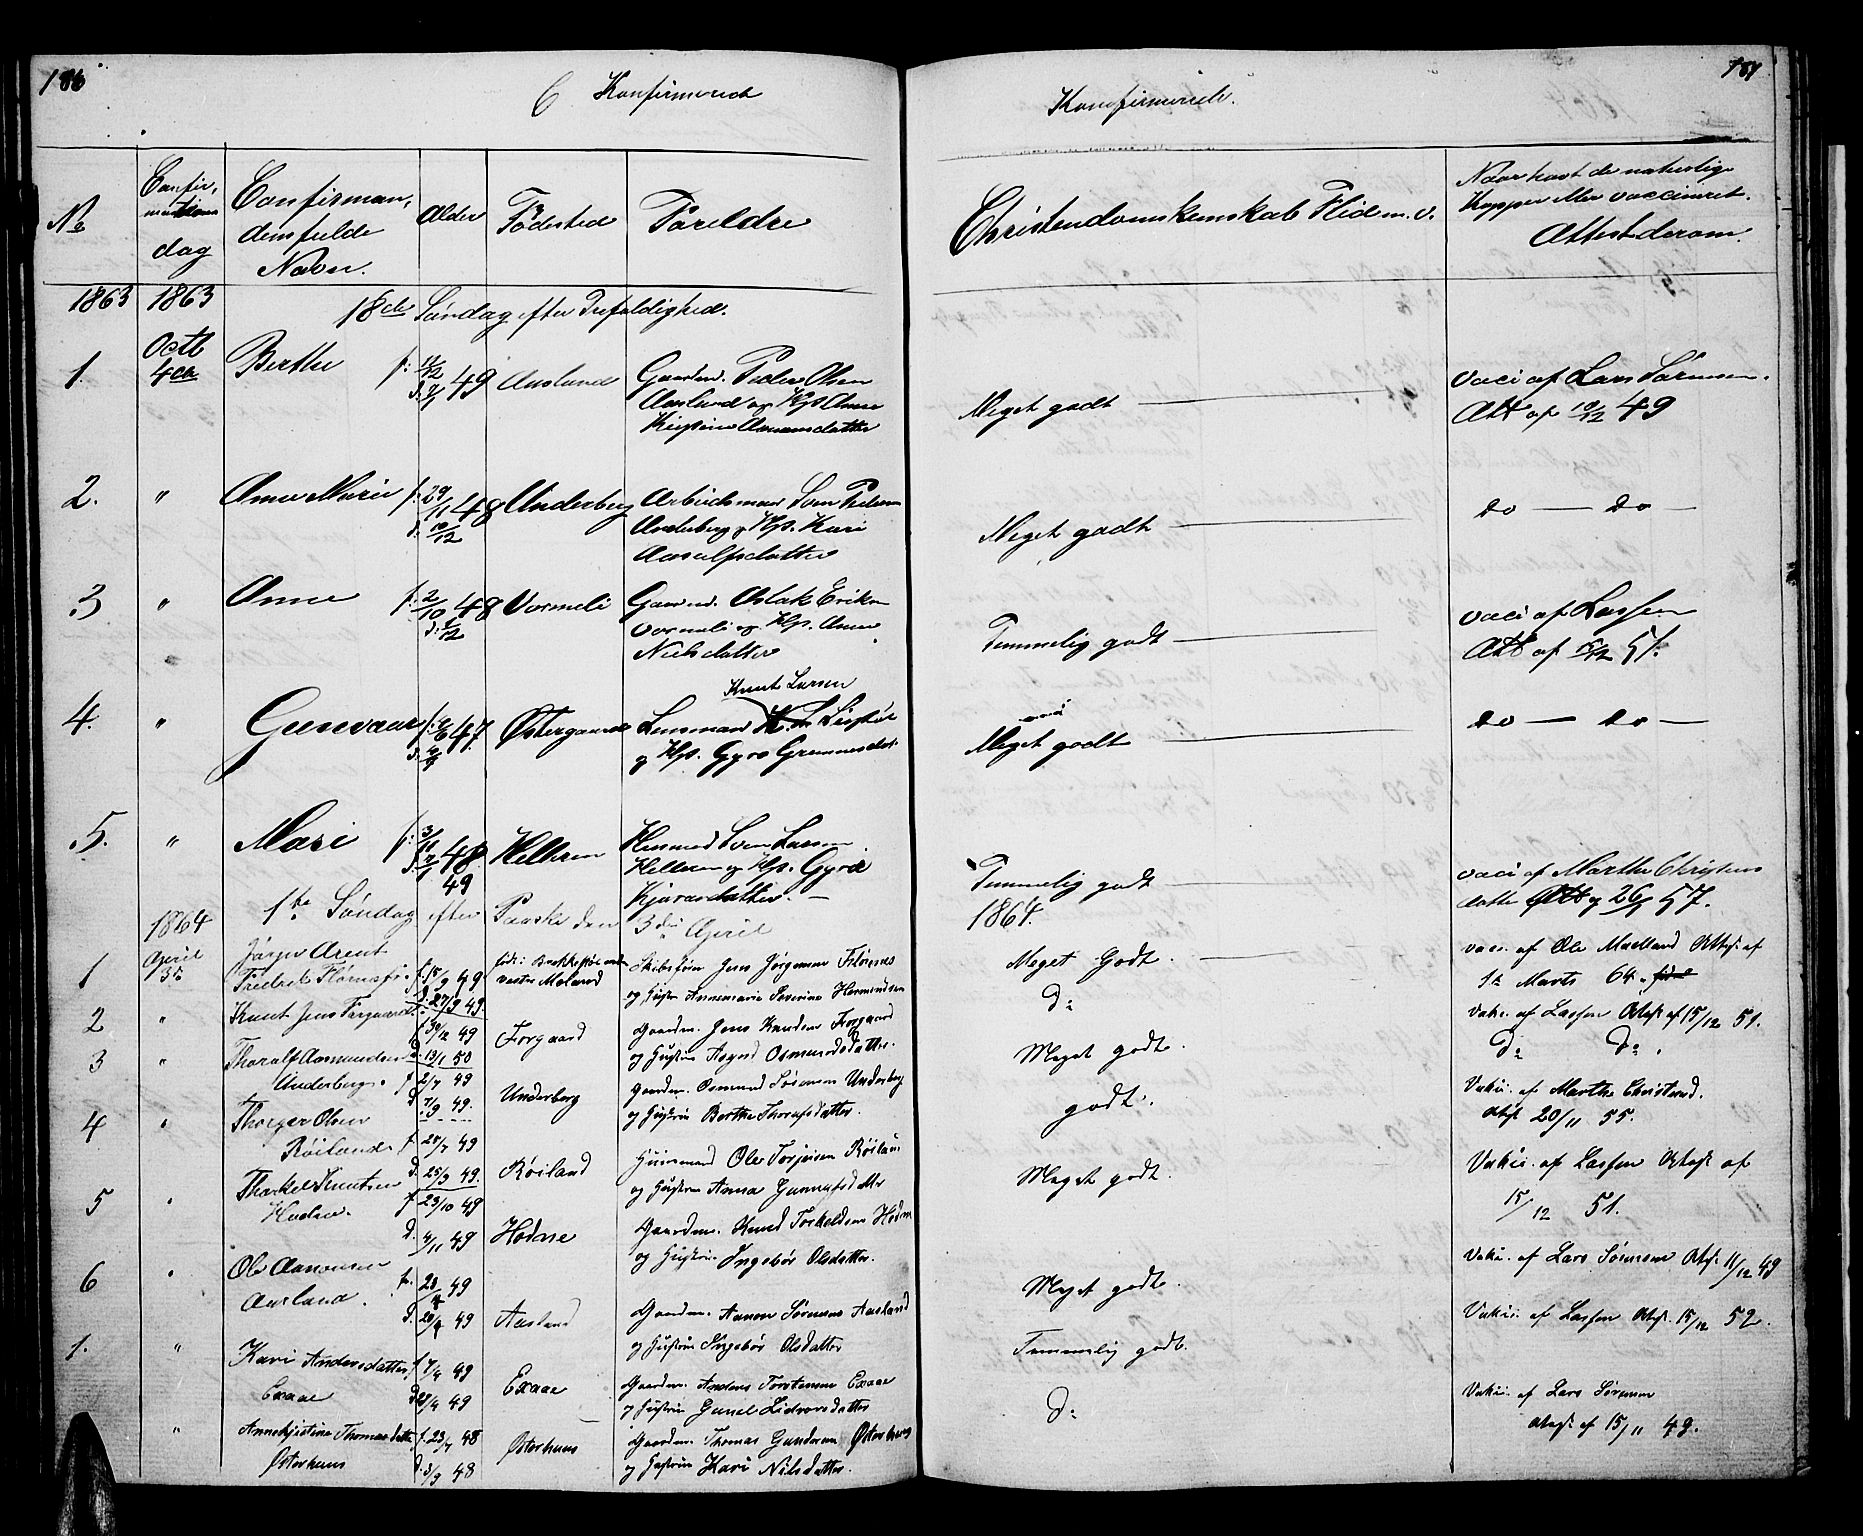 186
C Konfirmerede
No
Confirmations
dag
Confirman,
dens fulde
Navn.
Alder
Fødested
Forældre
1863 1863 18de Søndag efter Trefoldighed.
1. Octb 4de Berthe f. 11/12 49 Aasland Gaardm. Peder Olsen
Aasland og Hst. Anne
Kirstine Aanonsdatter
2. " Anne Marie f. 29/11 48 Underberg Arbeidsmand Sven Pedersen
d. 10/12 Underberg og Hst. Kari
Aasulfsdatter
3 " Anne f. 2/10 48 Vormeli Gaardm. Aslak Eriksen
Vormeli og Hst. Anne
Nielsdatter
Knut Larsen
4. " Gunvaar 47. Østergaard Lensmand
og Hst. Gyro
5. " Mari f. 48 Helleren Huusmd. Sven Larsen
49 Helleren og Hst. Gyro
1864 1te Søndag efter Paaske den 3die April
1 April 3de Jørgen Arent
Fredrik f. 15/9 49 Vestre Moland Skibsfører Jens Jørgensen
d. 27/9 49. og Hustru Annemarie Severine
2 " Knut Jens f. 30/12 49 Frogaard Gaardm. Jens Knudsen Frogaard
d. 13/1 50 og Hustru Asgerd Osmundsdatter.
3 " Tharalf Aasmundsen
Underberg. f. 2/7 49 Underberg Gaardm. Osmund Sørensen Underberg
d. 7/9 49. og Hustru Berthe Thorufsdatter.
4 " Thorger Olsen
Røiland f. 28/7 49 Røiland Huusmand Ole Torjeisen Røiland
d. 25/9 49. og Hustru Anna Gunnufsdatter
5 " Thorkel Knutsen
Hodne. f. 23/10 49 Hodne Gaardm. Knud Torkeldsen Hodne
d. 4/11 49 og Hustru Ingebor Olsdatter.
6 " Ole Aanonsen
Aasland. f. 20 49 Aasland Gaardm. Aanon Sørensen Aasland
d. 49 og Hustru Ingebor Olsdatter
1. " Kari Andersdatter f. 7/4 49 Exaae Gaardm. Anders Torstensen Exaae
Exaae d. 49 og Hustru Gunel Lidvorsdatter
" Annekjistine Thomasdatter f. 23/7 48 Østerhuus Gaardm. Thomas Gundersen Østerhuus
Østerhuus d. 3/9 48 og Hustru Kari Nilsdatter.
187
Konfirmerede.
Christendomskundskab Flid m. v.
Naar havt de naturlige
Kopper eller vaccineret.
Attest derom.
Meget godt
vacci af Lars Sørensen.
Att af 10/12 49
Meget godt
do — do —
Temmelig godt
vacci af Lassen
Att af 15/12 51.
Meget godt
do — do —
Temmelig godt
vacci af Marthe Christens
datter Att af 57.
1864.
Meget Godt.
vacc. af Ole Mælland Attest af
1te Marts 64.
do
Vakc. af Lassen Attest af 15/12 51.
Meget godt.
do do.
godt.
Vakci. af Marthe Christensd.
Attest 20/11 55.
Meget godt.
Vakci. af Lassen Attest af
15/12 51.
Meget godt.
Vakci. af Lars Sørensen Attest. 11/12 49
Temmelig godt.
Vakci. af Lassen Attest. 15/12 52.
do
Vakci. af Lars Sørensen
Attest af 15/11 49.